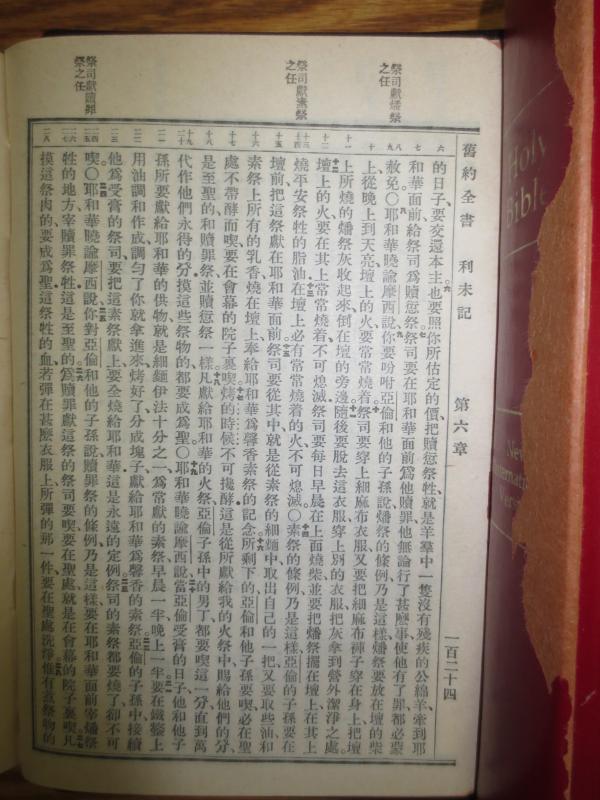 舊約全書 利未記 第六章 一百二十四
祭司獻燔祭之任
祭司獻素祭之任
祭司獻贖罪祭之任
的日子要交還本主、也要照你所估定的價、把贖愆祭牲、就是羊羣中一隻沒有殘疾的公綿羊、牽到耶
和華面前給祭司爲贖愆祭、祭司要在耶和華面前爲他贖罪、他無論行了甚麼事、使他有了罪、都必蒙
赦免〇耶和華曉諭摩西說、你要吩咐亞倫和他的子孫說、燔祭的條例乃是這樣、燔祭要放在壇的柴
上、從晚上到天亮、壇上的火要常常燒着、祭司要穿上細麻布衣服、又要把細麻布褲子穿在身上、把壇
上所燒的燔祭灰收起來、倒在壇的旁邊、隨後要脫去這衣服、穿上別的衣服、把灰拿到營外潔淨之處、
壇上的火要在其上常常燒着、不可熄滅、祭司要每日早晨在上面燒柴、並要把燔祭擺在壇上、在其上
燒平安祭牲的脂油、在壇上必有常常燒着的火、不可熄滅〇素祭的條例乃是這樣、亞倫的子孫要在
壇前把這祭獻在耶和華面前、祭司要從其中、就是從素祭的細麵中、取出自己的一把、又要取些油和
素祭上所有的乳香、燒在壇上、奉給耶和華爲馨香素祭的記念、所剩下的亞倫和他子孫要喫、必在聖
處不帶酵而喫、要在會幕的院子裏喫、烤的時候不可攙酵、這是從所獻給我的火祭中賜給他們的分、
是至聖的、和贖罪祭並贖愆祭一樣、凡獻給耶和華的火祭、亞倫子孫中的男丁都要喫這一分、直到萬
代作他們永得的分、摸這些祭物的、都要成爲聖〇耶和華曉諭摩西說、當亞倫受膏的日子、他和他子
孫所要獻給耶和華的供物、就是細麵伊法十分之一、爲常獻的素祭、早晨一半、晚上一半、要在鐵鏊上
用油調和作成、調勻了、你就拿進來、烤好了分成塊子、獻給耶和華爲馨香的素祭、亞倫的子孫中、接續
他爲受膏的祭司、要把這素祭獻上、要全燒給耶和華、這是永遠的定例、祭司的素祭都要燒了、卻不可
喫〇耶和華曉諭摩西說、你對亞倫和他的子孫說、贖罪祭的條例乃是這樣、要在耶和華面前宰燔祭
牲的地方、宰贖罪祭牲、這是至聖的、爲贖罪獻這祭的祭司要喫、要在聖處、就是在會幕的院子裏喫、凡
摸這祭肉的要成爲聖、這祭牲的血若彈在甚麼衣服上、所彈的那一件、要在聖處洗淨、惟有煮祭物的
Holy
Bible
New
International
Version